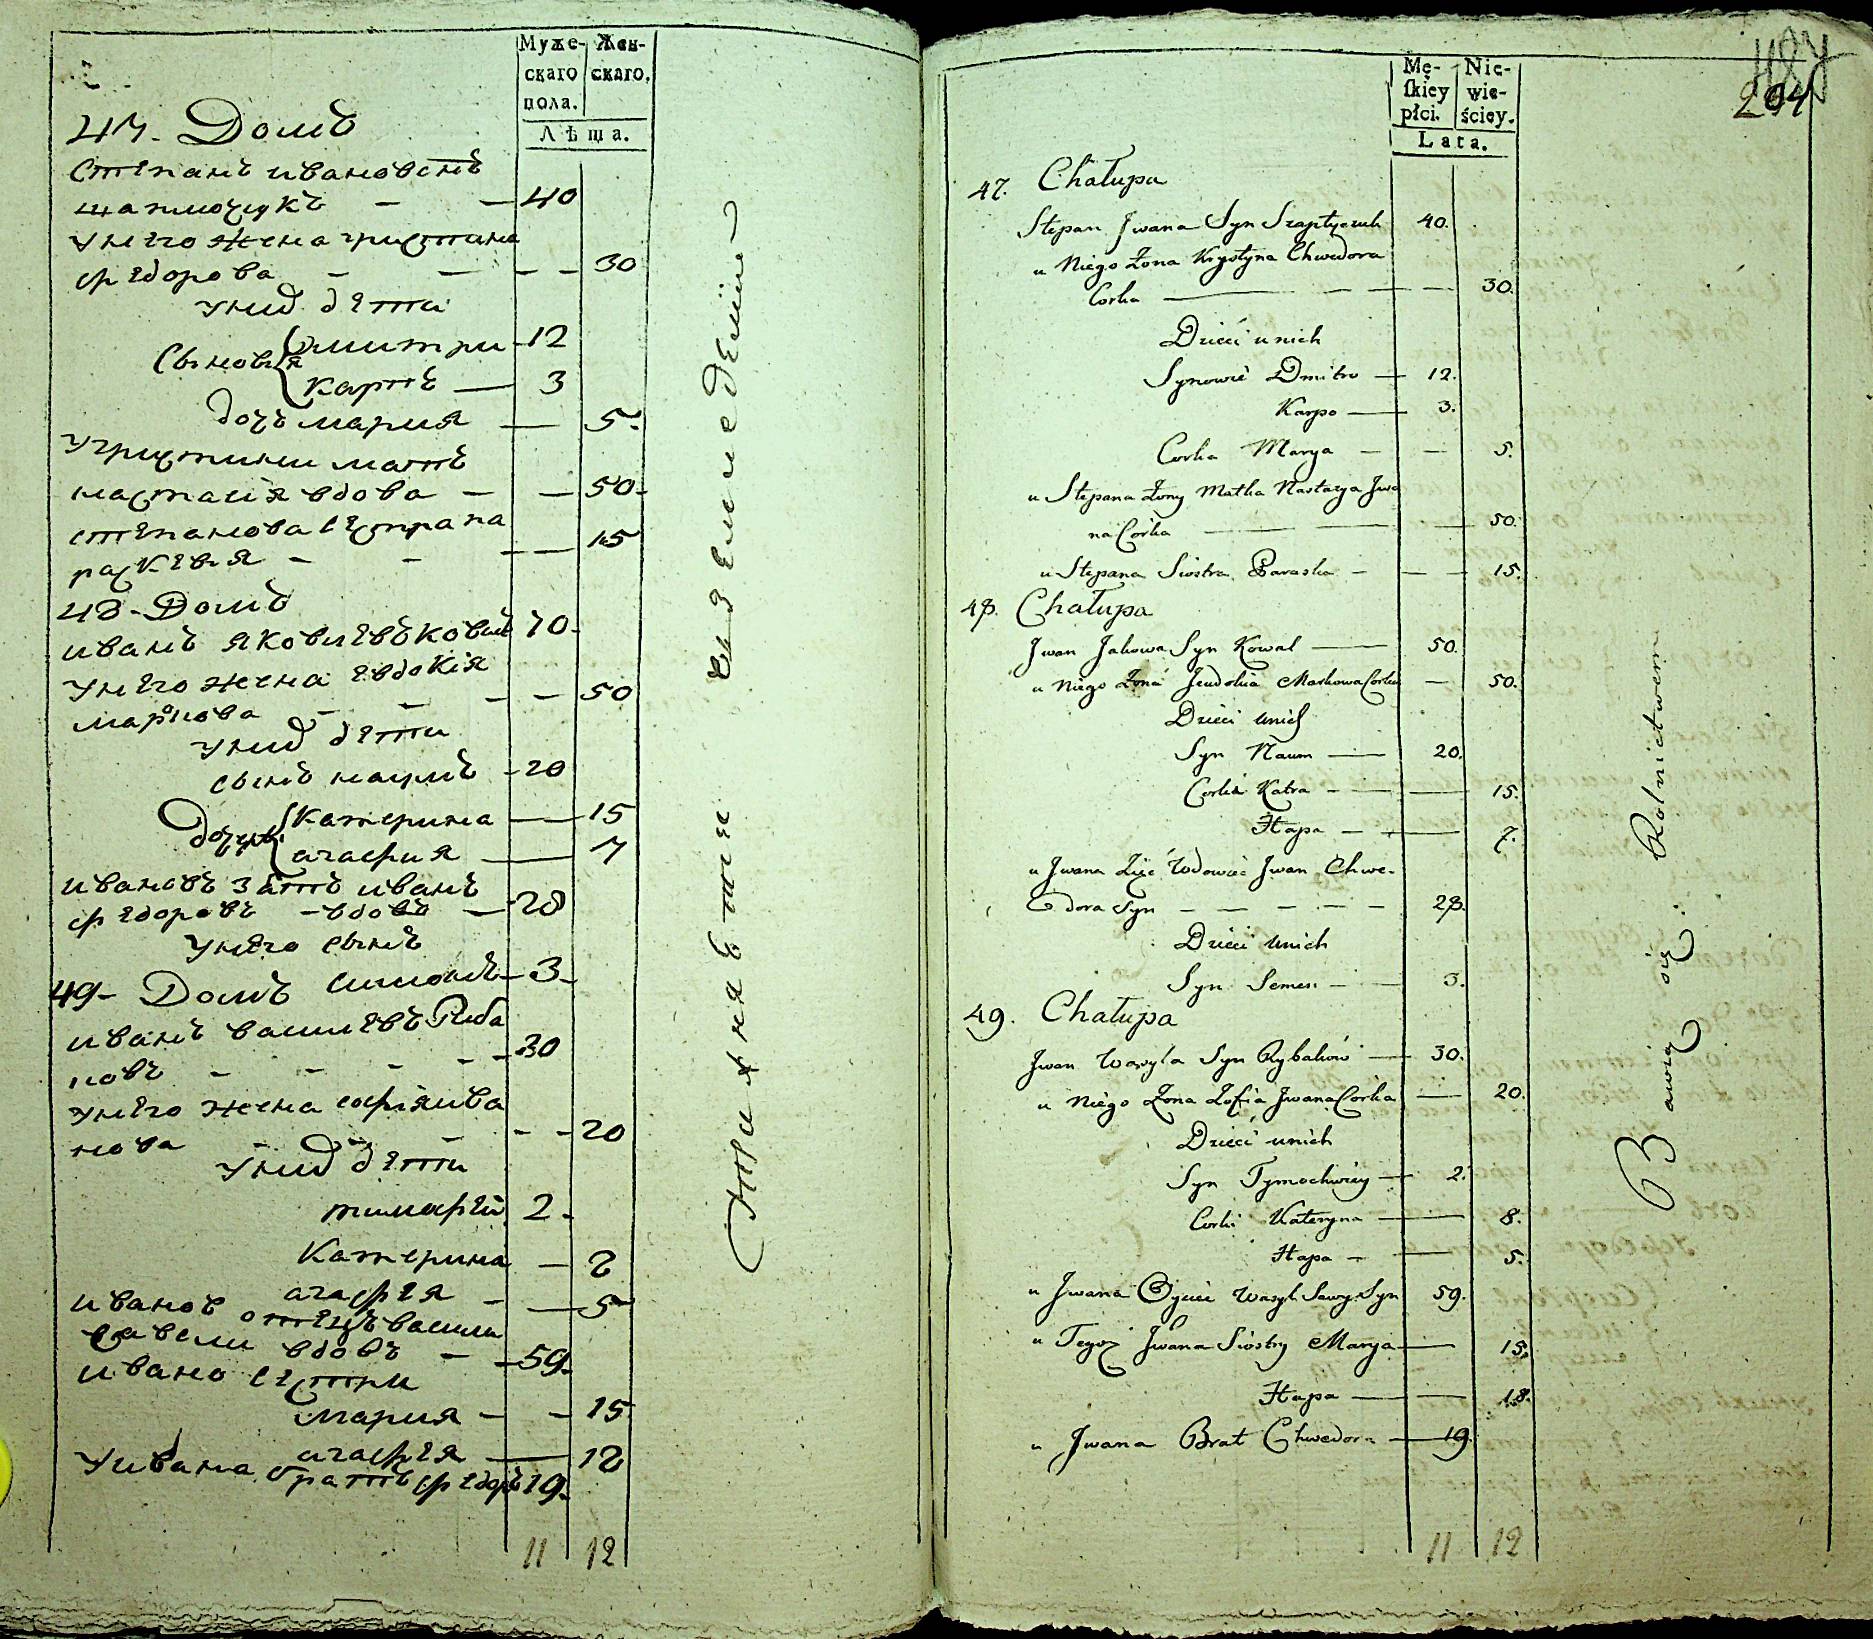 Муже-
скаго
пола.
Жен-
скаго.
Лѣта.
47. Домъ
Степанъ ивановсынъ
40
унего жена христина
федорова - - - - 30
унихъ дети
Сыновья митри - 12
карпъ — 3
дочь мария — 5.
Ухристини мать
настасія вдова - - 50.
степанова сестра па
раскевия - - — 15
48. Домъ
иванъ яковлевъ коваль 70.
унего жена евдокія
маркова - - - - 50
унихъ дети
сынъ наумъ - 20
дочери катерина — 15
агафия — 7
ивановъ зять иванъ
федоровъ - вдовъ — 28
унего сынъ
симонъ - 3.
49. Домъ
иванъ василевъ Риба
ковъ - - - - - 30
унего жена софія ива
нова - - - - 20
унихъ дети
тимофѣй 2.
катерина — 2
агафея - — 5
иванов отецъ васили
савели вдовъ - - 59.
ивано сестри
мария - - 15
агафея — 12
Уивана братъ федоръ 19.
11 12
Упражняется въ земледелии
487
204
Mę-
skiey
płci.
Nie-
wie-
ściey.
Lata.
47. Chałupa
Stepan Jwana Syn Szaptyczuk 40.
u Niego Żona Krystyna Chwedora
Corka — - - — 30.
Dzieci unich
Synowie Dmitro — 12.
Karpo — 3.
Corka Marya - - 5.
u Stepana Żony Matka Nastazya Jwa
na Corka — — — 50.
u Stepana Siostra Paraska - - - 15.
48. Chałupa
Jwan Jakowa Syn Kowal — 50.
u Niego Żona Jewdokia Markowa Corka — 50.
Dzieci unich
Syn Naum — 20.
Corka Katra - - — 15.
Hapa - - — 7.
u Jwana Zięć Wdowiec Jwan Chwe-
dora Syn - - - - - 28.
Dzieci unich
Syn Semen - - 3.
49. Chałupa
Jwan Wasyla Syn Rybaków — 30.
u Niego Żona Zofia Jwana Corka — 20.
Dzieci unich
Syn Tymochwiey — 2.
Corki Kateryna — 8.
Hapa - — 5.
u Jwana Oyciec Wasyl Sawy Syn 59.
u Tegoż Jwana Siostry Marya — 15.
Hapa — — 18.
u Jwana Brat Chwedora — 19.
11 12
Bawią się Rolnictwem